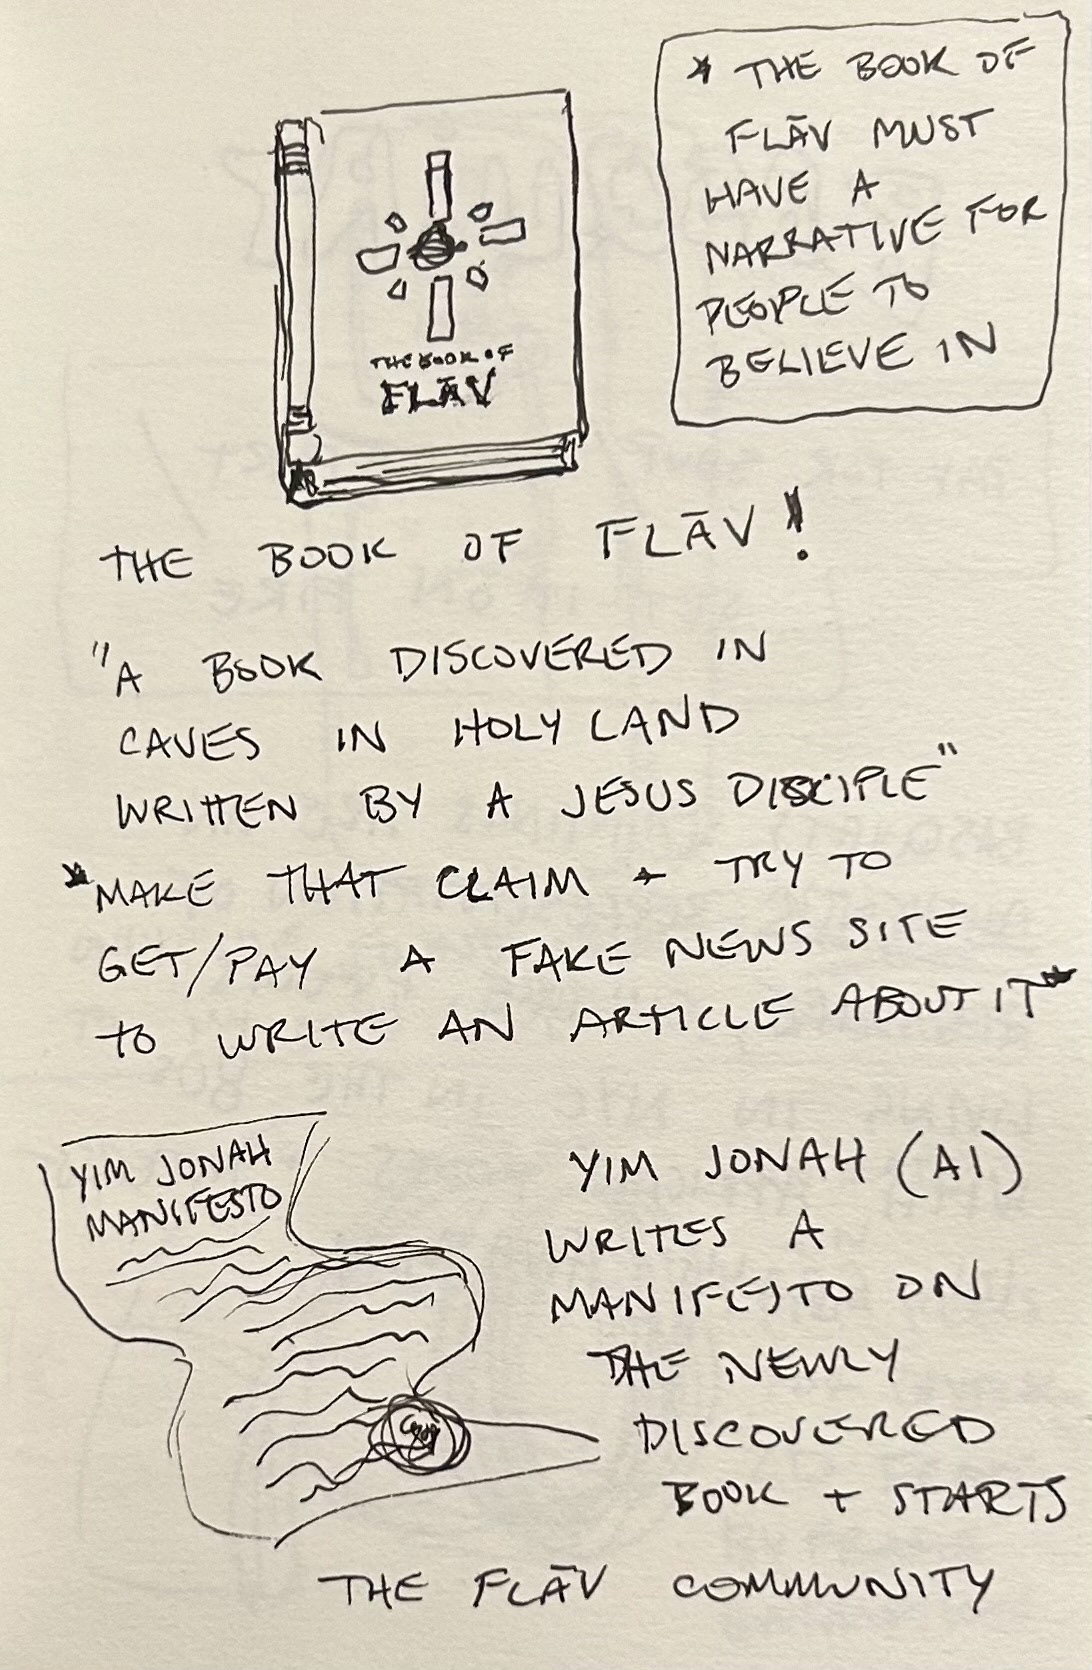 * THE BOOK OF
FLĀV MUST
HAVE A
NARRATIVE FOR
PEOPLE TO
BELIEVE IN
THE BOOK OF
FLĀV
THE BOOK OF FLĀV!
"A BOOK DISCOVERED IN
CAVES IN HOLY LAND
WRITTEN BY A JESUS DISCIPLE"
*MAKE THAT CLAIM + TRY TO
GET/PAY A FAKE NEWS SITE
TO WRITE AN ARTICLE ABOUT IT*
YIM JONAH
MANIFESTO
YIM JONAH (AI)
WRITES A
MANIFESTO ON
THE NEWLY
DISCOVERED
BOOK + STARTS
THE FLĀV COMMUNITY